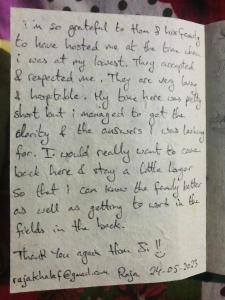 i'm so grateful to Hom & his family
to have hosted me at the time when
i was at my lowest. They accepted
& respected me. They are very loving
& hospitable. My time here was pretty
short but i managed to get the
clarity & the answers I was looking
for. I would really want to come
back here & stay a little longer
so that I can know the family better
as well as getting to work in the
fields in the back.
Thank You again Hom Ji !!
rajakhalaf@gmail.com Raja 24-05-2023